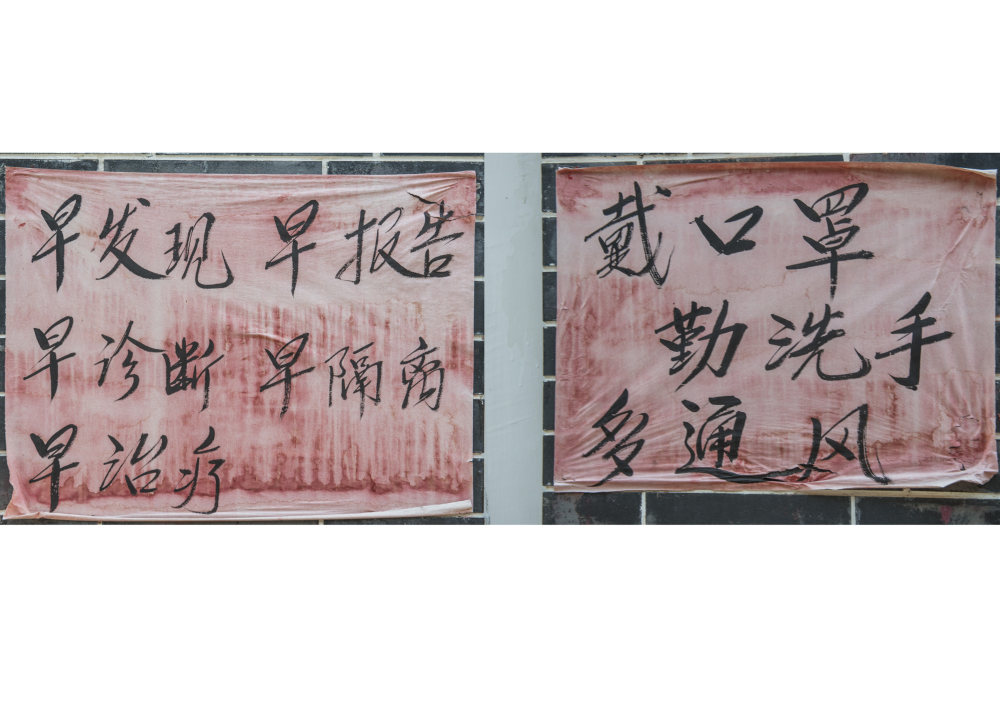 早发现 早报告
早诊断 早隔离
早治疗
戴口罩
勤洗手
多通风